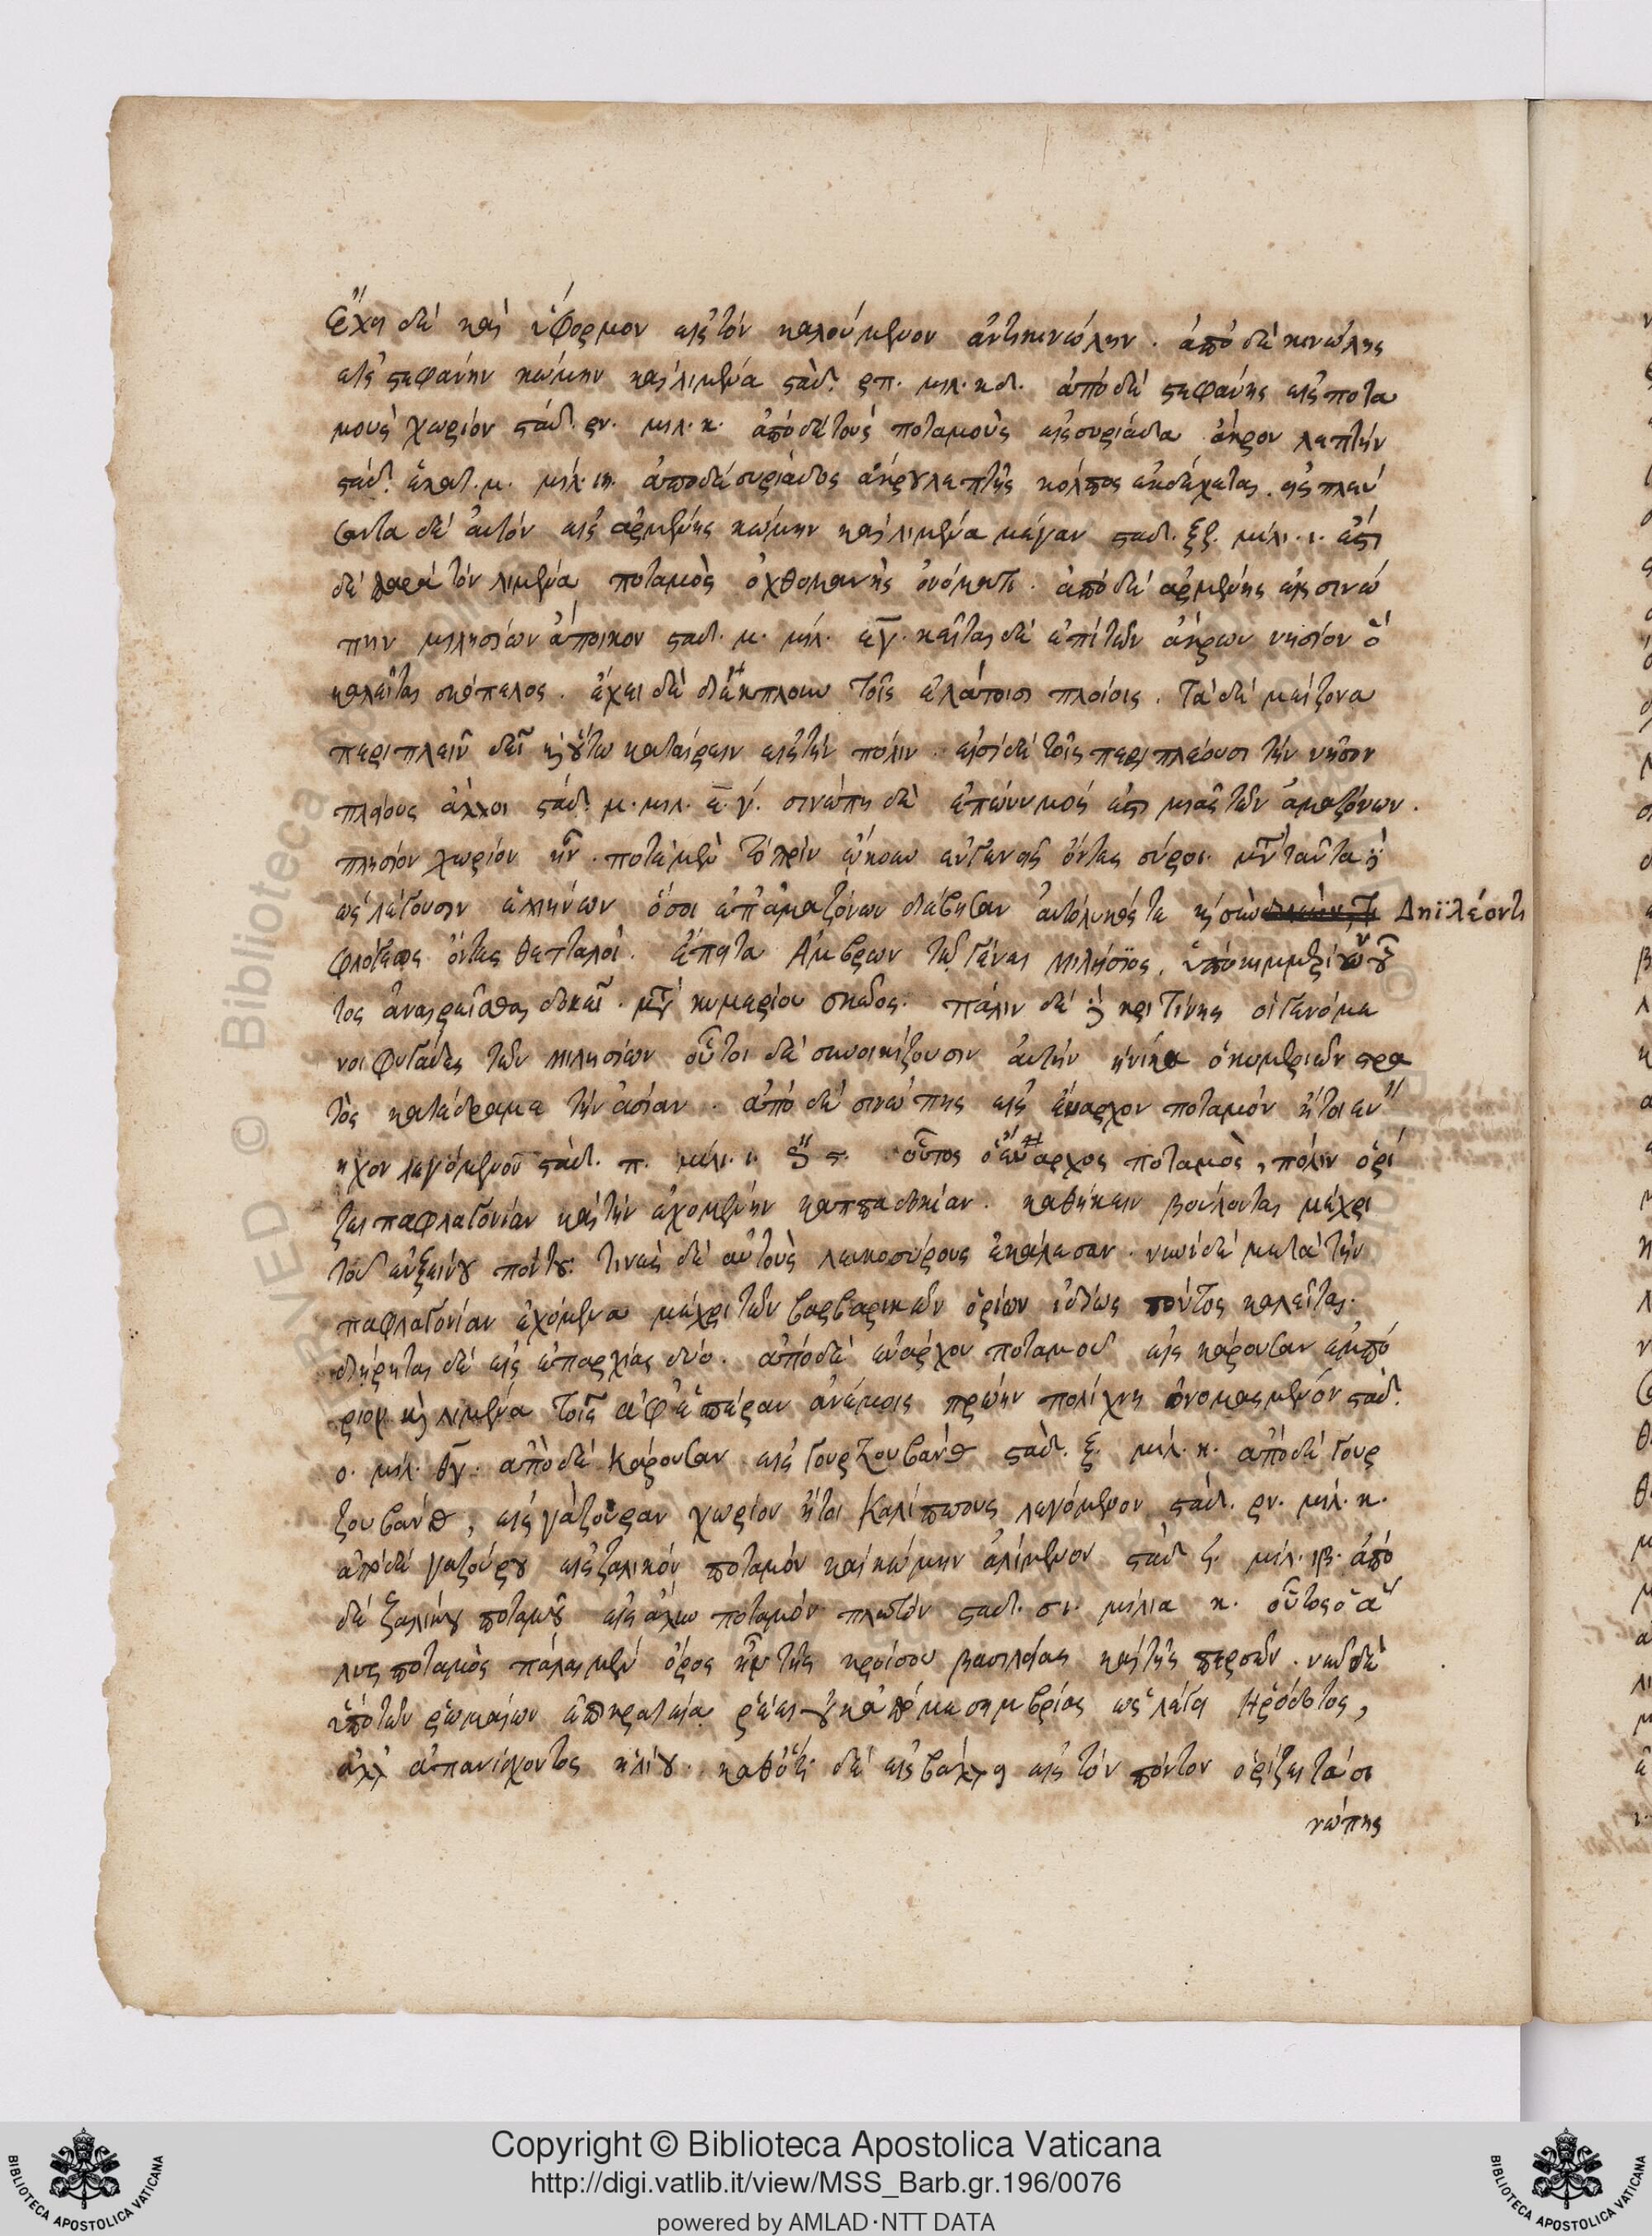 ἔχει δὲ καὶ ὕφορμον εἰς τὸν καλούμενον ἀντικινώλην. ἀπὸ δὲ κινώλης
εἰς στεφάνην κώμην καὶ λιμένα στάδ. ρπ. μίλ. κδ. ἀπὸ δὲ στεφάνης εἰς ποτα
μοὺς χωρίον στάδ. ρν. μίλ. κ. ἀπὸ δὲ τοὺς ποταμοὺς εἰς συριάδα ἄκρον λεπτὴν
στάδ. ἑκατ. μ. μίλ. ιη. ἀπὸ δὲ συριάδος ἄκρου λεπτῆς κόλπος ἐκδέχεται. εἰς πλεύ
σαντα δὲ αὐτὸν εἰς ἀρμένης κώμην καὶ λιμένα μέγαν σταδ. ξξ. μίλι. ι. ἔστι
δὲ παρὰ τὸν λιμένα ποταμὸς ὀχθομανὴς ὀνόματι. ἀπὸ δὲ ἀρμένης εἰς σινώ
πην μιλησίων ἄποικον σταδ. μ. μίλ. εγ. κεῖται δὲ ἐπὶ τῶν ἄκρων νησίον ὃ
καλεῖται σκόπελος. ἔχει δὲ διέκπλουν τοῖς ἐλάττοσι πλοίοις. τὰ δὲ μείζονα
περιπλεῖν δεῖ κ οὕτω καταίρειν εἰς τὴν πόλιν. εἰσὶ δὲ τοῖς περιπλέουσι τὴν νῆσον
πλείους ἄλλοι στάδ. μ. μιλ. ε. γ. σινώπη δὲ ἐπώνυμός ἐστι μιᾶς τῶν ἀμαζόνων.
πλησίον χωρίον ἦν. ποτὲ μὲν τὸ πρὶν ᾤκουν εὐγενεῖς ὄντες σύροι. μετὰ ταῦτα δὲ
ὡς λέγουσιν ἑλλήνων ὅσοι ἐπ' ἀμαζόνων διέβησαν αὐτόλυκός τε κ σὺν Δηϊλέοντι
φλόγεος ὄντες θετταλοί. ἔπειτα Ἄμβρων τῷ γένει μιλήσιος, ὑπὸ κιμμερίων οὗ
τος ἀναιρεῖσθαι δοκεῖ. μετὰ κιμερίου σκεδος. πάλιν δὲ κριτίνης οἱ γενόμε
νοι φυγάδες τῶν μιλησίων οὗτοι δὲ συνοικίζουσιν αὐτὴν ἡνίκα ὁ κιμμεριῶν στρα
τὸς κατέδραμε τὴν ἀσίαν. ἀπὸ δὲ σινώπης εἰς εὔαρχον ποταμὸν ἤτοι εὔ
ηχον λεγόμενον στάδ. π. μίλι. ι. οὗτος ὁ εὔαρχος ποταμὸς, πάλιν ὁρί
ζει παφλαγονίαν καὶ τὴν ἐχομένην καππαδοκίαν. καθήκειν βούλονται μέχρι
τοῦ εὐξείνου πόντου. τινὲς δὲ αὐτοὺς λευκοσύρους ἐκάλεσαν. νυνὶ δὲ μετὰ τὴν
παφλαγονίαν ἐχόμενα μέχρι τῶν βαρβαρικῶν ὁρίων ἰδίως πόντος καλεῖται.
διῄρηται δὲ εἰς ἐπαρχίας δύο. ἀπὸ δὲ εὐάρχου ποταμοῦ εἰς κάρουσαν ἐμπό
ριον κ λιμένα τοῖς ἀφ' ἑσπέραν ἀνέμοις πρώην πολίχνη ὀνομασμένον στάδ.
ο. μίλ. θγ. ἀπὸ δὲ Κάρουσαν εἰς Γουρζουβάνθ στάδ. ξ. μίλ. κ. ἀπὸ δὲ Γουρ
ζουβάνθ, εἰς γάζουραν χωρίον ἤτοι Καλίππους λεγόμενον στάδ. ρν. μίλ. κ.
ἀπὸ δὲ γαζούρου εἰς ζαλικὸν ποταμὸν καὶ κώμην ἀλίμενον στάδ. μίλ. ιβ. ἀπὸ
δὲ ζαλίκου ποταμοῦ εἰς ἅλυν ποταμὸν πλωτὸν σταδ. σι. μίλια κ. οὗτος ὁ ἅ
λυς ποταμὸς πάλαι μὲν ὅρος ἦν τῆς κροίσου βασιλείας καὶ τῆς περσῶν. νῦν δὲ
ὑπὸ τῶν ῥωμαίων ἐπικρατεία ῥέει οὐκ ἀπὸ μεσημβρίας ὡς λέγει Ἡρόδοτος,
ἀλλ' ἀπανίσχοντος ἡλίου. καθότι δὲ εἰσβάλλει εἰς τὸν πόντον ὁρίζει τὰ σι
νώπης
Copyright © Biblioteca Apostolica Vaticana
http://digi.vatlib.it/view/MSS_Barb.gr.196/0076
powered by AMLAD·NTT DATA